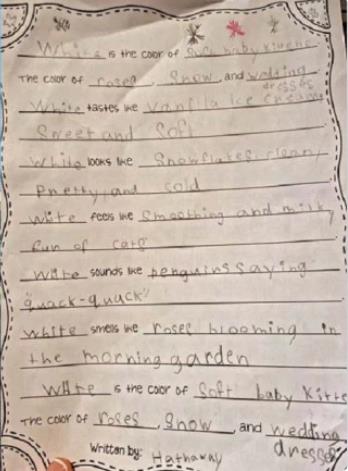 White is the color of soft baby kittens.
The color of roses, Snow, and wedding
dresses
White tastes like Vanilla Ice Cream
Sweet and Soft
White looks like Snowflakes, clean,
Pretty, and cold
White feels like Smoothing and milky
full of care
White sounds like penguins saying
"quack-quack"
White smells like roses blooming in
the morning garden
White is the color of Soft baby Kitte
The color of roses, Snow, and wedding
dresses
Written by: Hathaway